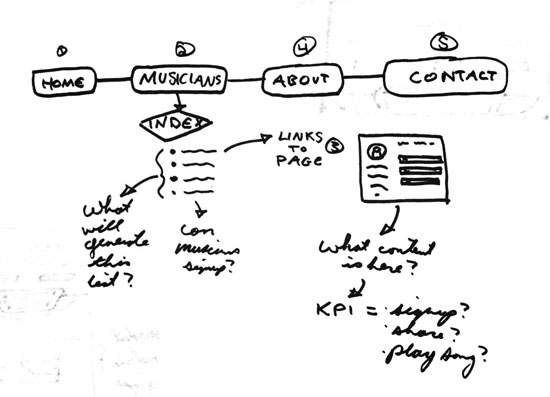 1
2
4
5
HOME
MUSICIANS
ABOUT
CONTACT
INDEX
LINKS
TO
PAGE
3
What
will
generate
this
list?
can
musicians
signup?
What content
is here?
KPI = signup?
share?
play song?